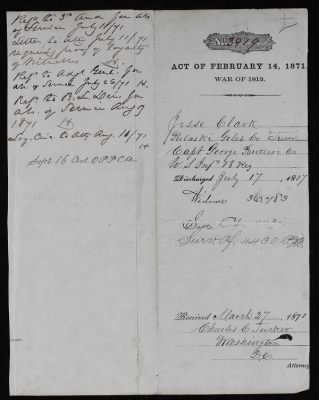 Refd to 3rd Aud. for abs.
of Service July 11/71
Letter to atty July 11/71
requiring proof of loyalty
of Witnesses H.
Refd to Adjt Genl. for
abs. of Service July 26/71 H.
Refd to B. L. Div. for
abs. of Service Aug 9
1871 H
Loy. Circ to Atty Aug. 14/71
H
Sept 16
No. 3919
ACT OF FEBRUARY 14, 1871.
WAR OF 1812.
Jesse Clark
Pulaski Giles Co
Capt George Co
U S Inf 18 Reg
Discharged July 17 1817
Widow 36,783
Surv Cf. 4430
Received March 27 1871
Charles C Tucker
Washington
D.C.
Attorney